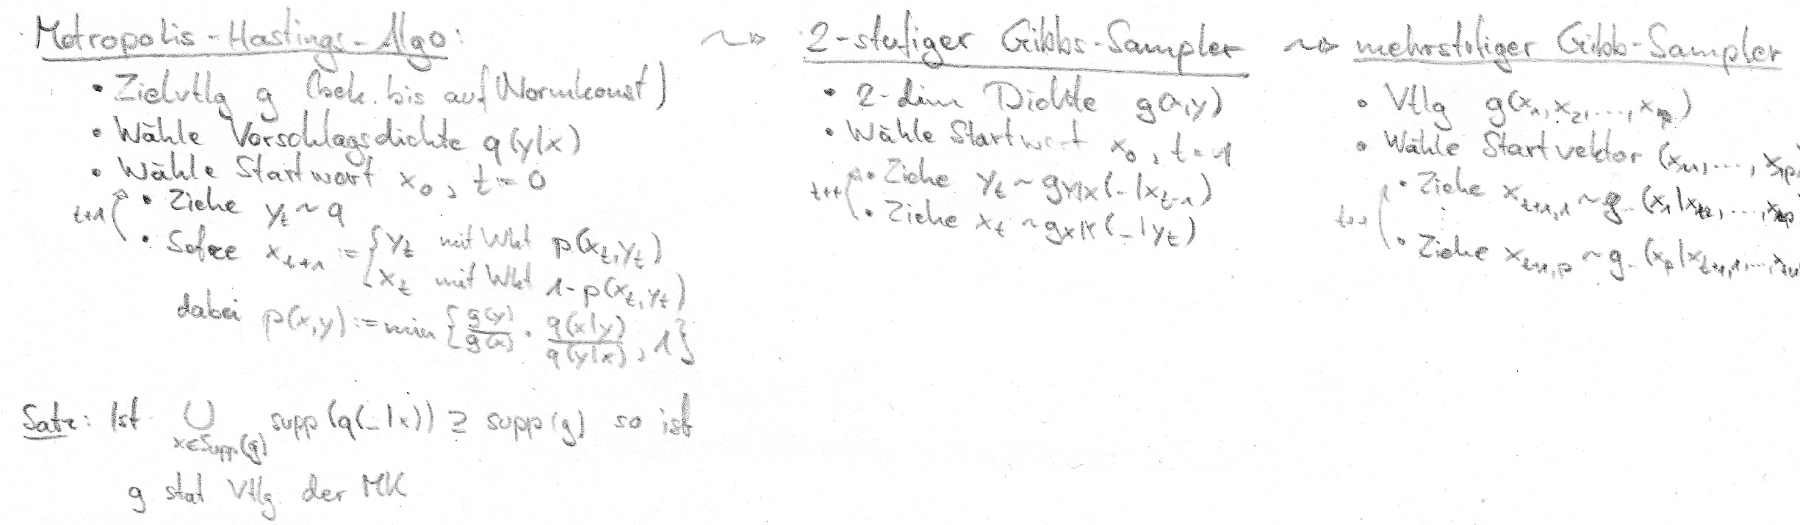 Metropolis-Hastings-Algo:
• Zielvtlg g (bek. bis auf Normkonst)
• Wähle Vorschlagsdichte q(y|x)
• Wähle Startwert x_0, t=0
t+1 • Ziehe y_t ~ q
• Setze x_{t+1} := { y_t mit Wkt p(x_t, y_t)
x_t mit Wkt 1-p(x_t, y_t)
dabei p(x,y) := min { g(y)/g(x) · q(x|y)/q(y|x), 1 }
Satz: Ist ⋃_{x∈Supp(g)} supp(q(_|x)) ⊇ supp(g) so ist
g stat Vtlg der MK
~> 2-stufiger Gibbs-Sampler
• 2-dim Dichte g(x,y)
• Wähle Startwert x_0, t=1
t++ • Ziehe y_t ~ g_{Y|X}(_|x_{t-1})
• Ziehe x_t ~ g_{X|Y}(_|y_t)
~> mehrstufiger Gibb-Sampler
• Vtlg g(x_1, x_2, ..., x_p)
• Wähle Startvektor (x_{11}, ..., x_{1p})
t++ • Ziehe x_{t+1,1} ~ g_(x_1|x_{t2}, ..., x_{tp})
⋮
• Ziehe x_{t+1,p} ~ g_(x_p|x_{t+1,1}, ...,